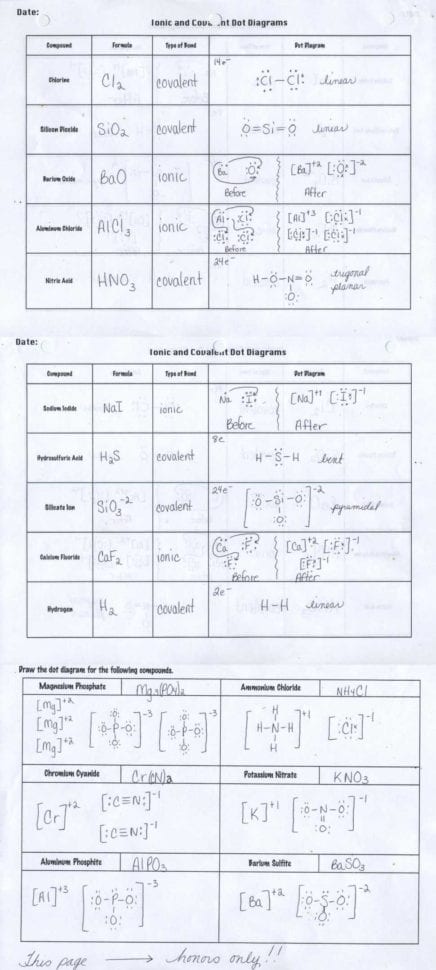 Date:
Ionic and Cov nt Dot Diagrams
Compound Formula Type of Bond Dot Diagram
Chlorine Cl2 covalent 14e- :Cl-Cl: linear
Silicon Dioxide SiO2 covalent O=Si=O linear
Barium Oxide BaO ionic Ba :O: [Ba]+2 [:O:]-2
Before After
Aluminum Chloride AlCl3 ionic Al :Cl: [Al]+3 [:Cl:]-1
:Cl: :Cl: [:Cl:]-1 [:Cl:]-1
Before After
Nitric Acid HNO3 covalent 24e- H-O-N=O trigonal planar
:O:
Date:
Ionic and Covalent Dot Diagrams
Compound Formula Type of Bond Dot Diagram
Sodium Iodide NaI ionic Na :I: [Na]+1 [:I:]-1
Before After
Hydrosulfuric Acid H2S covalent 8e- H-S-H bent
Silicate Ion SiO3-2 covalent 24e- [:O-Si-O:]-2 pyramidal
:O:
Calcium Fluoride CaF2 ionic Ca :F: [Ca]+2 [:F:]-1
:F: [:F:]-1
Before After
Hydrogen H2 covalent 2e- H-H linear
Draw the dot diagram for the following compounds.
Magnesium Phosphate Mg3(PO4)2 Ammonium Chloride NH4Cl
[Mg]+2 :O: :O: H
[Mg]+2 [:O-P-O:]-3 [:O-P-O:]-3 [H-N-H]+1 [:Cl:]-1
[Mg]+2 :O: :O: H
Chromium Cyanide Cr(CN)2 Potassium Nitrate KNO3
[Cr]+2 [:C≡N:]-1 [K]+1 [:O-N-O:]-1
[:C≡N:]-1 :O:
Aluminum Phosphite AlPO3 Barium Sulfite BaSO3
[Al]+3 [:O-P-O:]-3 [Ba]+2 [:O-S-O:]-2
:O: :O:
This page → honors only!!